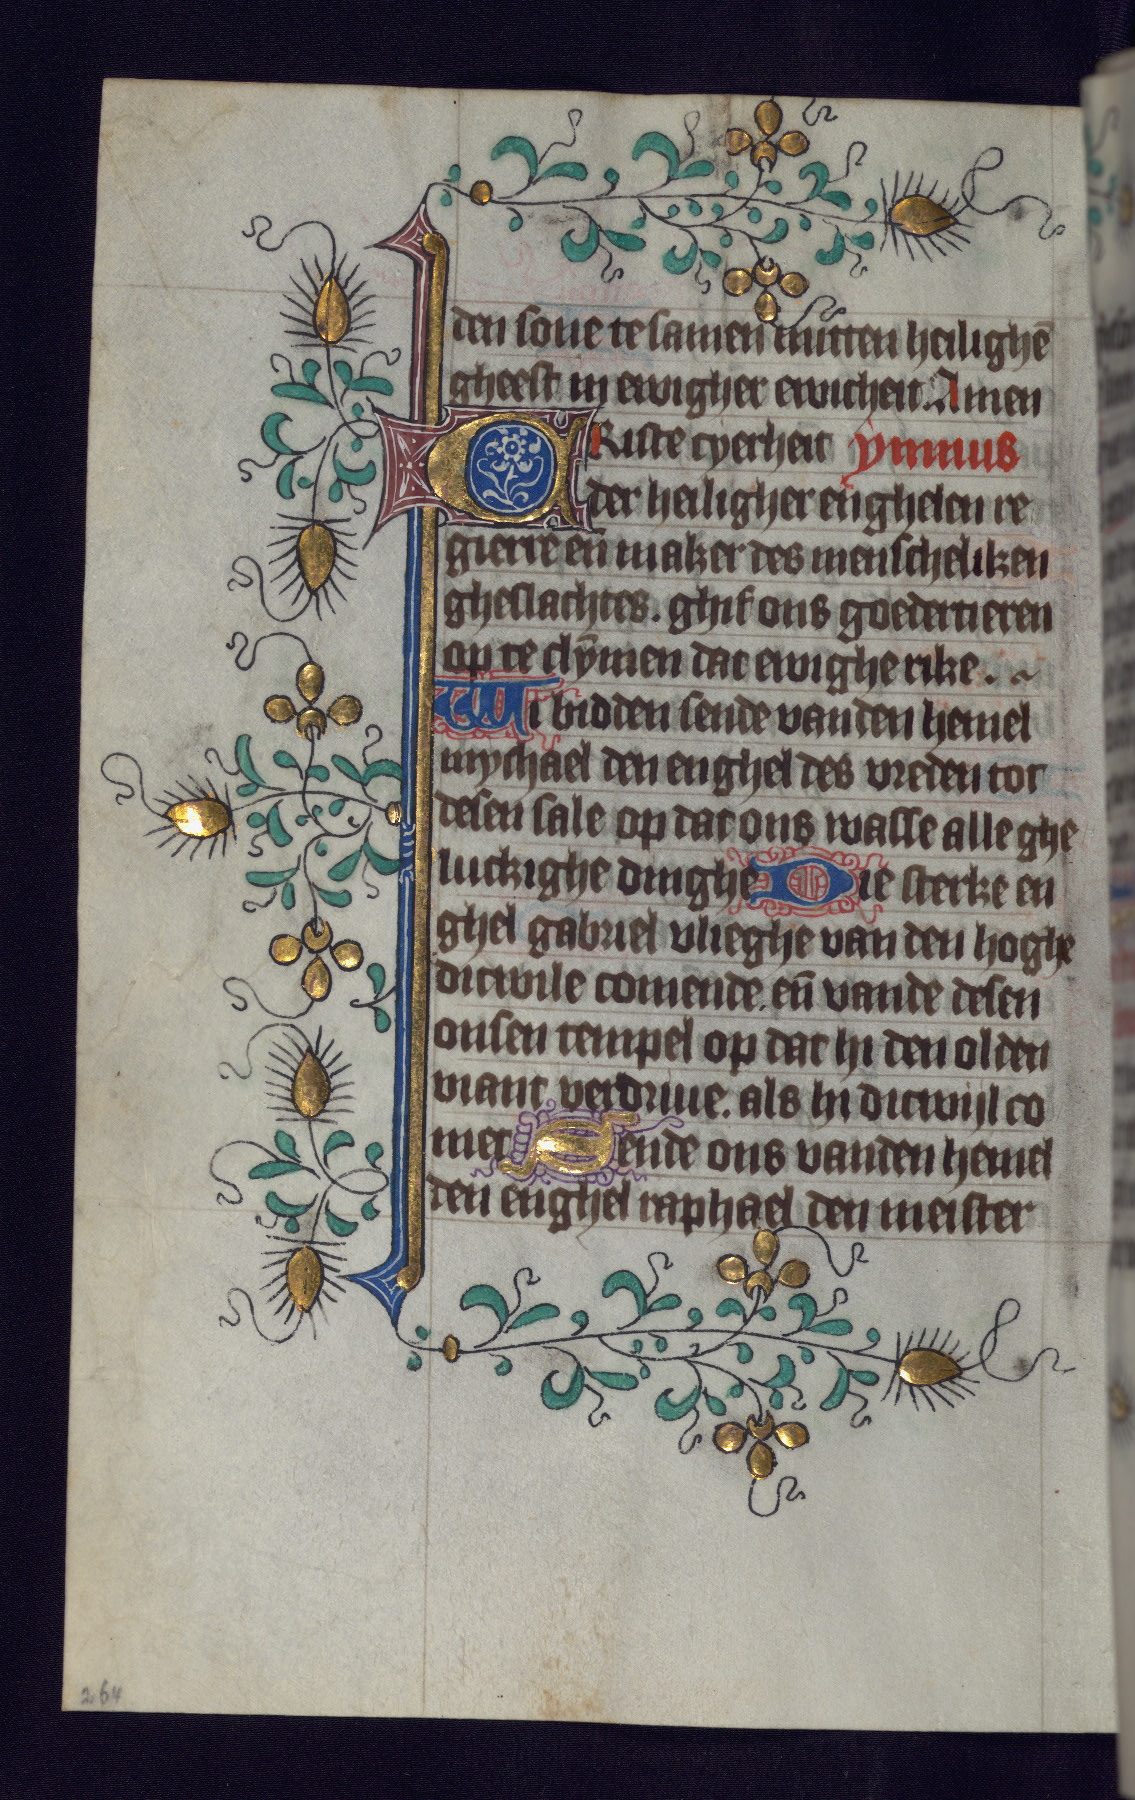 den sone te samen mitten heilighē
gheest in ewigher ewicheit. Amen
CRiste cyerheit ymnus
der heiligher enghelen re
gierre eñ maker des menscheliken
gheslachtes. ghif ons goedertieren
op te clymen dat ewighe rike.
Wi bidden sende van den hemel
mychael den enghel des vreden tot
desen sale op dat ons wasse alle ghe
luckighe dinghe Die sterke en
ghel gabriel vlieghe van den hoghe
dicwile comende. eñ vande desen
onsen tempel op dat hi den olden
viant verdriue. als hi dicwijl co
met Sende ons vanden hemel
den enghel raphael den meister
264